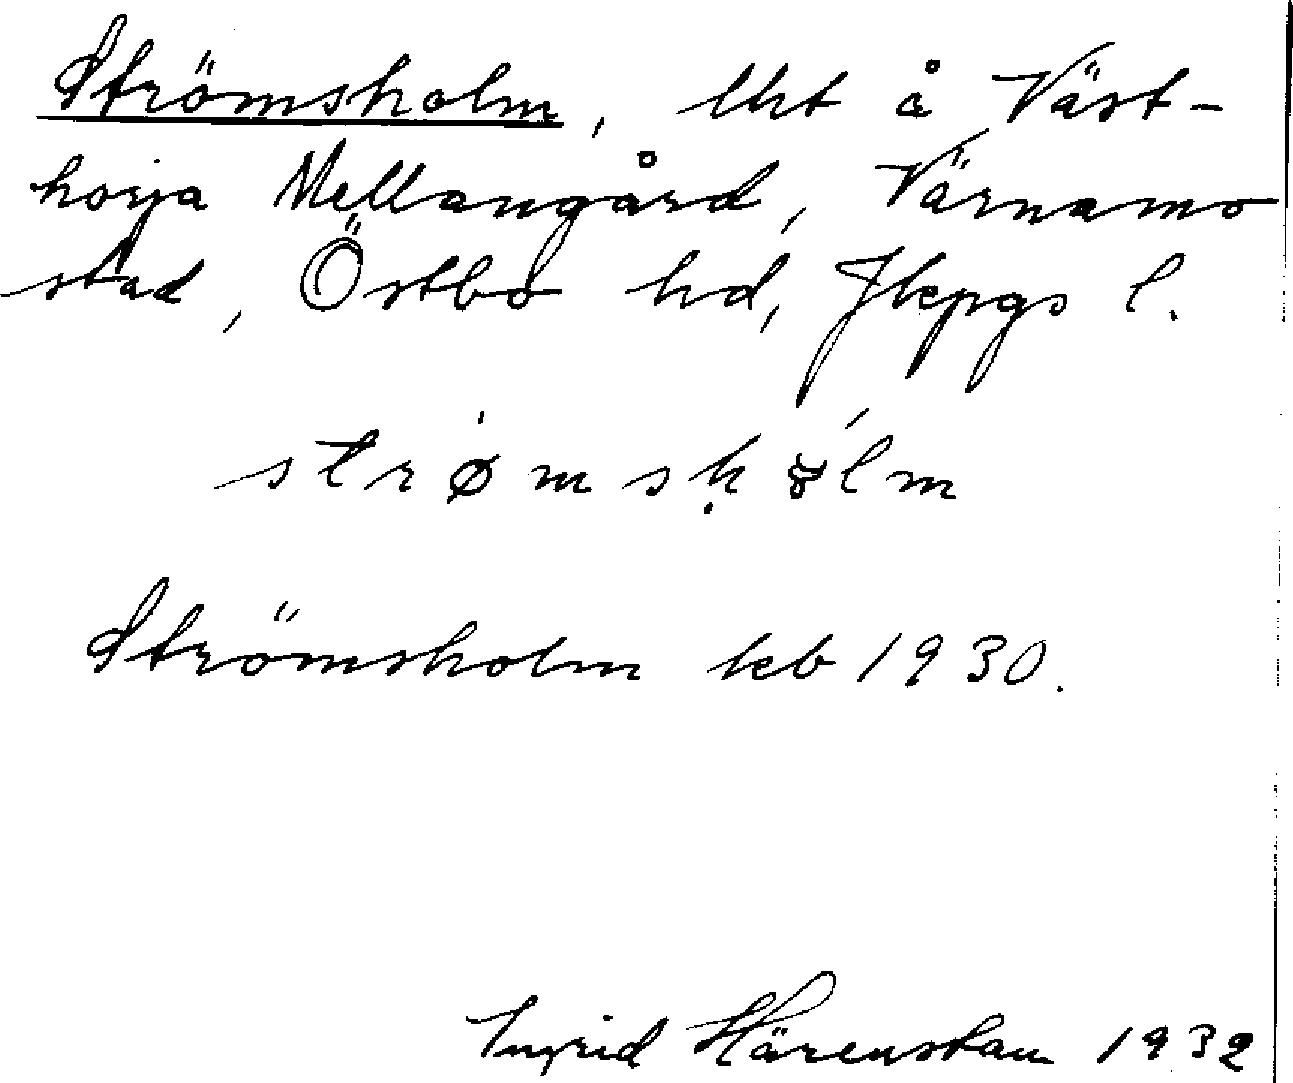 Strömsholm, lht å Väst-
horja Mellangård, Värnamo
stad, Östbo hd, Jkpgs l.
strømsḥålm
Strömsholm keb 1930.
Ingrid Härenstam 1932